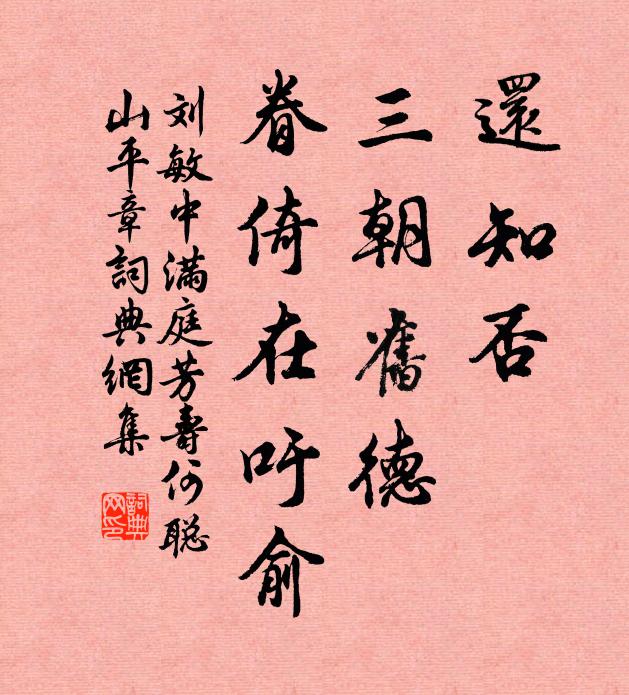 還知否
三朝舊德
眷倚在吁俞
刘敏中滿庭芳壽何聪
山平章詞典網集
詞典
网印